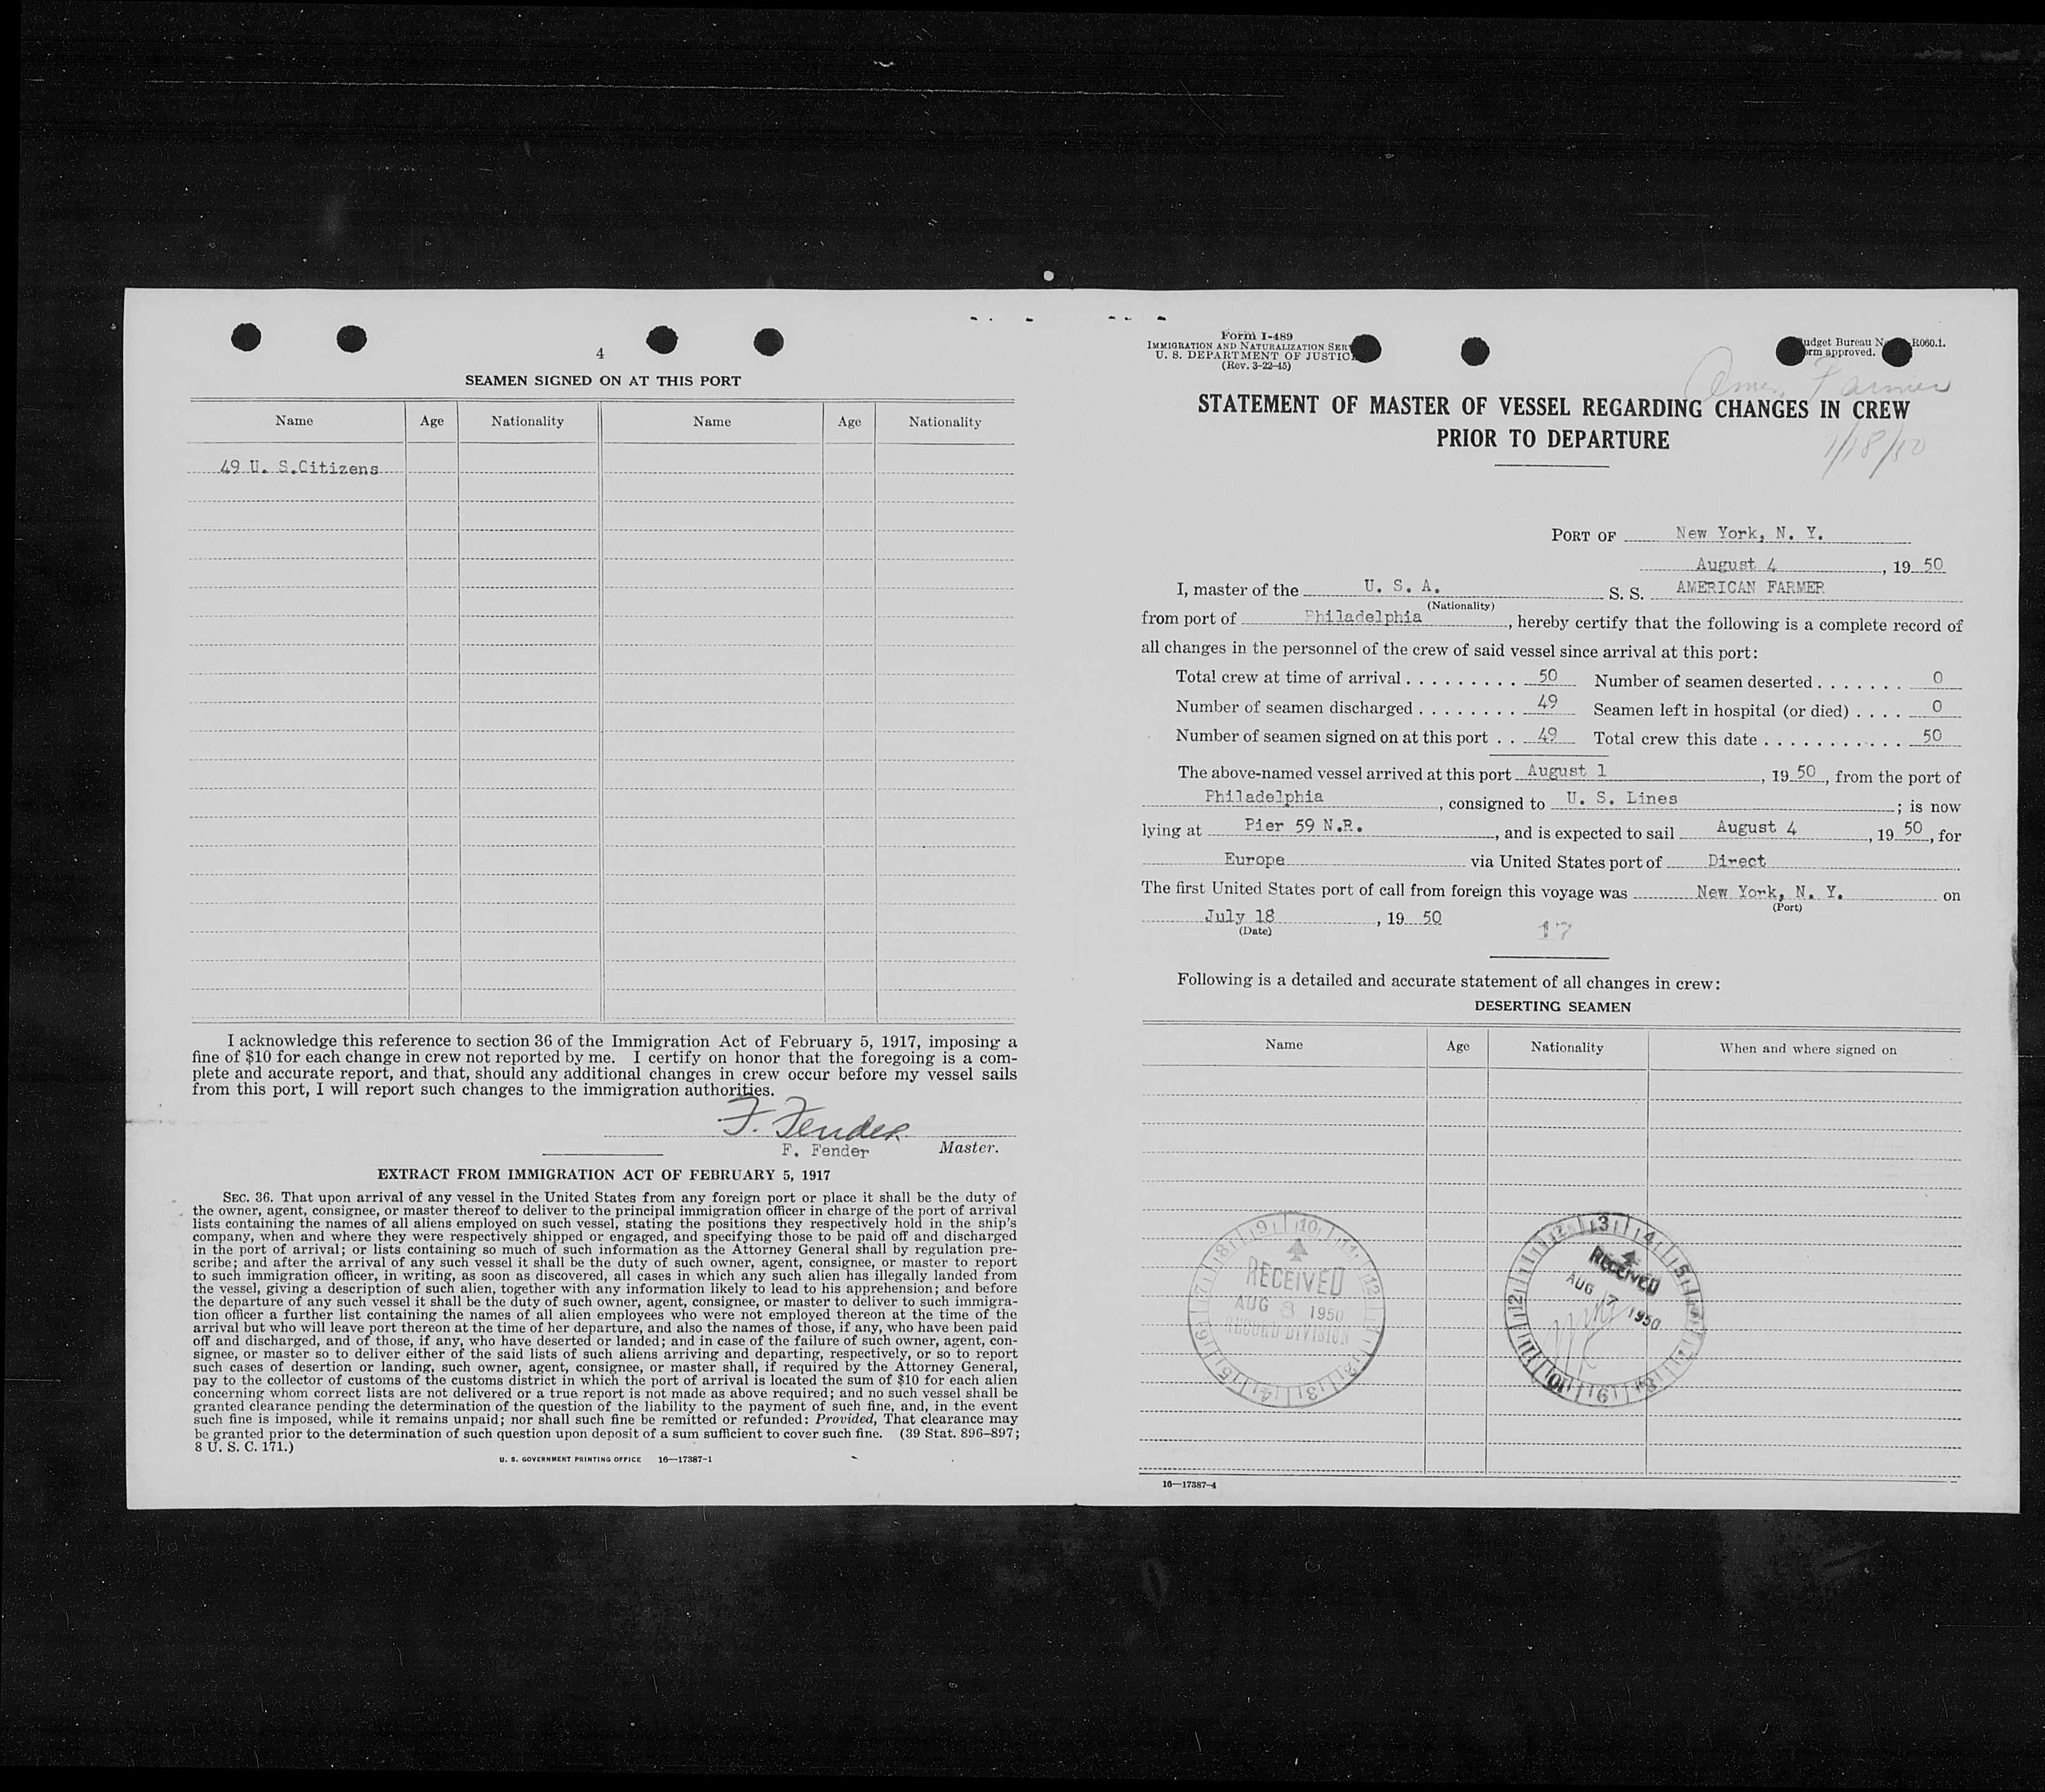 4
SEAMEN SIGNED ON AT THIS PORT
Name Age Nationality Name Age Nationality
49 U. S.Citizens
I acknowledge this reference to section 36 of the Immigration Act of February 5, 1917, imposing a
fine of $10 for each change in crew not reported by me. I certify on honor that the foregoing is a com-
plete and accurate report, and that, should any additional changes in crew occur before my vessel sails
from this port, I will report such changes to the immigration authorities.
F. Fender
F. Fender Master.
EXTRACT FROM IMMIGRATION ACT OF FEBRUARY 5, 1917
SEC. 36. That upon arrival of any vessel in the United States from any foreign port or place it shall be the duty of
the owner, agent, consignee, or master thereof to deliver to the principal immigration officer in charge of the port of arrival
lists containing the names of all aliens employed on such vessel, stating the positions they respectively hold in the ship's
company, when and where they were respectively shipped or engaged, and specifying those to be paid off and discharged
in the port of arrival; or lists containing so much of such information as the Attorney General shall by regulation pre-
scribe; and after the arrival of any such vessel it shall be the duty of such owner, agent, consignee, or master to report
to such immigration officer, in writing, as soon as discovered, all cases in which any such alien has illegally landed from
the vessel, giving a description of such alien, together with any information likely to lead to his apprehension; and before
the departure of any such vessel it shall be the duty of such owner, agent, consignee, or master to deliver to such immigra-
tion officer a further list containing the names of all alien employees who were not employed thereon at the time of the
arrival but who will leave port thereon at the time of her departure, and also the names of those, if any, who have been paid
off and discharged, and of those, if any, who have deserted or landed; and in case of the failure of such owner, agent, con-
signee, or master so to deliver either of the said lists of such aliens arriving and departing, respectively, or so to report
such cases of desertion or landing, such owner, agent, consignee, or master shall, if required by the Attorney General,
pay to the collector of customs of the customs district in which the port of arrival is located the sum of $10 for each alien
concerning whom correct lists are not delivered or a true report is not made as above required; and no such vessel shall be
granted clearance pending the determination of the question of the liability to the payment of such fine, and, in the event
such fine is imposed, while it remains unpaid; nor shall such fine be remitted or refunded: Provided, That clearance may
be granted prior to the determination of such question upon deposit of a sum sufficient to cover such fine. (39 Stat. 896–897;
8 U. S. C. 171.)
U. S. GOVERNMENT PRINTING OFFICE 16—17387-1
Form I-489
IMMIGRATION AND NATURALIZATION SER
U. S. DEPARTMENT OF JUSTIC
(Rev. 3-22-45)
udget Bureau N R060.1.
orm approved.
Amer. Farmer
STATEMENT OF MASTER OF VESSEL REGARDING CHANGES IN CREW
PRIOR TO DEPARTURE
7/18/50
PORT OF New York, N. Y.
August 4, 19 50
I, master of the U. S. A. S. S. AMERICAN FARMER
(Nationality)
from port of Philadelphia, hereby certify that the following is a complete record of
all changes in the personnel of the crew of said vessel since arrival at this port:
Total crew at time of arrival . . . . . . . . . 50 Number of seamen deserted . . . . . . . 0
Number of seamen discharged . . . . . . . . 49 Seamen left in hospital (or died) . . . . 0
Number of seamen signed on at this port . . 49 Total crew this date . . . . . . . . . . . . 50
The above-named vessel arrived at this port August 1, 19 50, from the port of
Philadelphia, consigned to U. S. Lines; is now
lying at Pier 59 N.R., and is expected to sail August 4, 19 50, for
Europe via United States port of Direct
The first United States port of call from foreign this voyage was New York, N. Y. on
(Port)
July 18, 19 50
(Date)
17
Following is a detailed and accurate statement of all changes in crew:
DESERTING SEAMEN
Name Age Nationality When and where signed on
RECEIVED
AUG 8 1950
RECORD DIVISION
RECEIVED
AUG 7 1950
16—17387-4